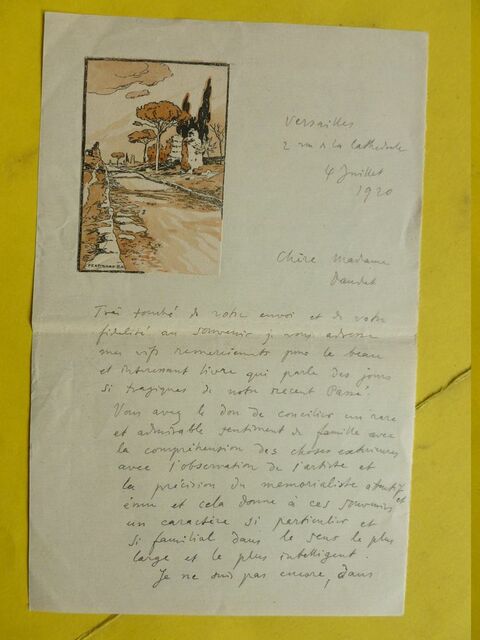 Versailles
2 rue de la Cathédrale
4 Juillet
1920
Chère Madame
Daudet
Très touché de votre envoi et de votre
fidélité au souvenir je vous adresse
mes vifs remerciements pour le beau
et intéressant livre qui parle des jours
si tragiques de notre récent Passé.
Vous avez le don de concilier un rare
et admirable sentiment de famille avec
la compréhension des choses extérieures
avec l'observation de l'artiste et
la précision du mémorialiste attentif et
ému et cela donne à ces souvenirs
un caractère si particulier et
si familial dans le sens le plus
large et le plus intelligent.
Je ne suis pas encore, dans